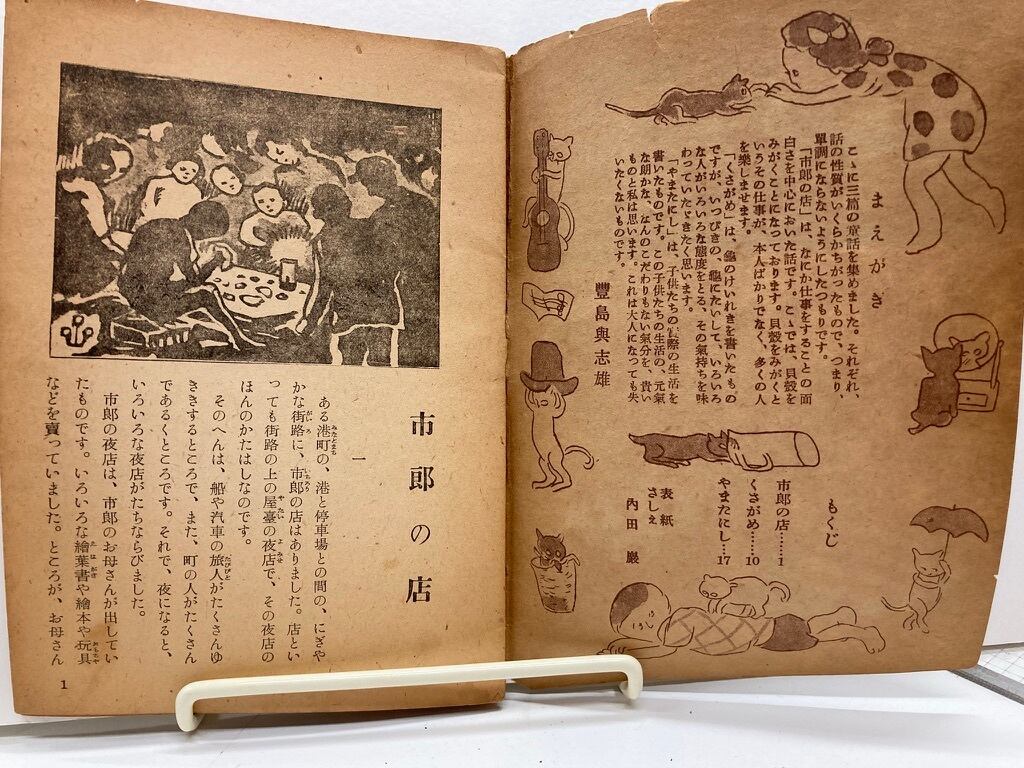 まえがき
こゝに三篇の童話を集めました。それぞれ、
話の性質がいくらかちがったもので、つまり、
單調にならないようにしたつもりです。
「市郎の店」は、なにか仕事をすることの面
白さを中心においた話です。こゝでは、貝殼を
みがくことになっております。貝殼をみがくと
いうその仕事が、本人ばかりでなく、多くの人
を樂しませます。
「くさがめ」は、龜のけいれきを書いたもの
ですが、いっぴきの、龜にたいして、いろいろ
な人がいろいろな態度をとる、その氣持ちを味
わっていたゞきたく思います。
「やまたにし」は、子供たちの實際の生活を
書いたものです。この子供たちの生活の、元氣
な朗かな、なんのこだわりもない氣分を、貴い
ものと私は思います。これは大人になっても失
いたくないものです。
豐島與志雄
もくじ
市郎の店………1
くさがめ……10
やまたにし…17
表紙
さしえ
內田 巖
市郎の店
一
ある港町の、港と停車場との間の、にぎや
かな街路に、市郎の店はありました。店とい
っても街路の上の屋臺の夜店で、その夜店の
ほんのかたはしなのです。
そのへんは、船や汽車の旅人がたくさんゆ
ききするところで、また、町の人がたくさん
であるくところです。それで、夜になると、
いろいろな夜店がたちならびました。
市郎の夜店は、市郎のお母さんが出してい
たものです。いろいろな繪葉書や繪本や玩具
などを賣っていました。ところが、お母さん
1